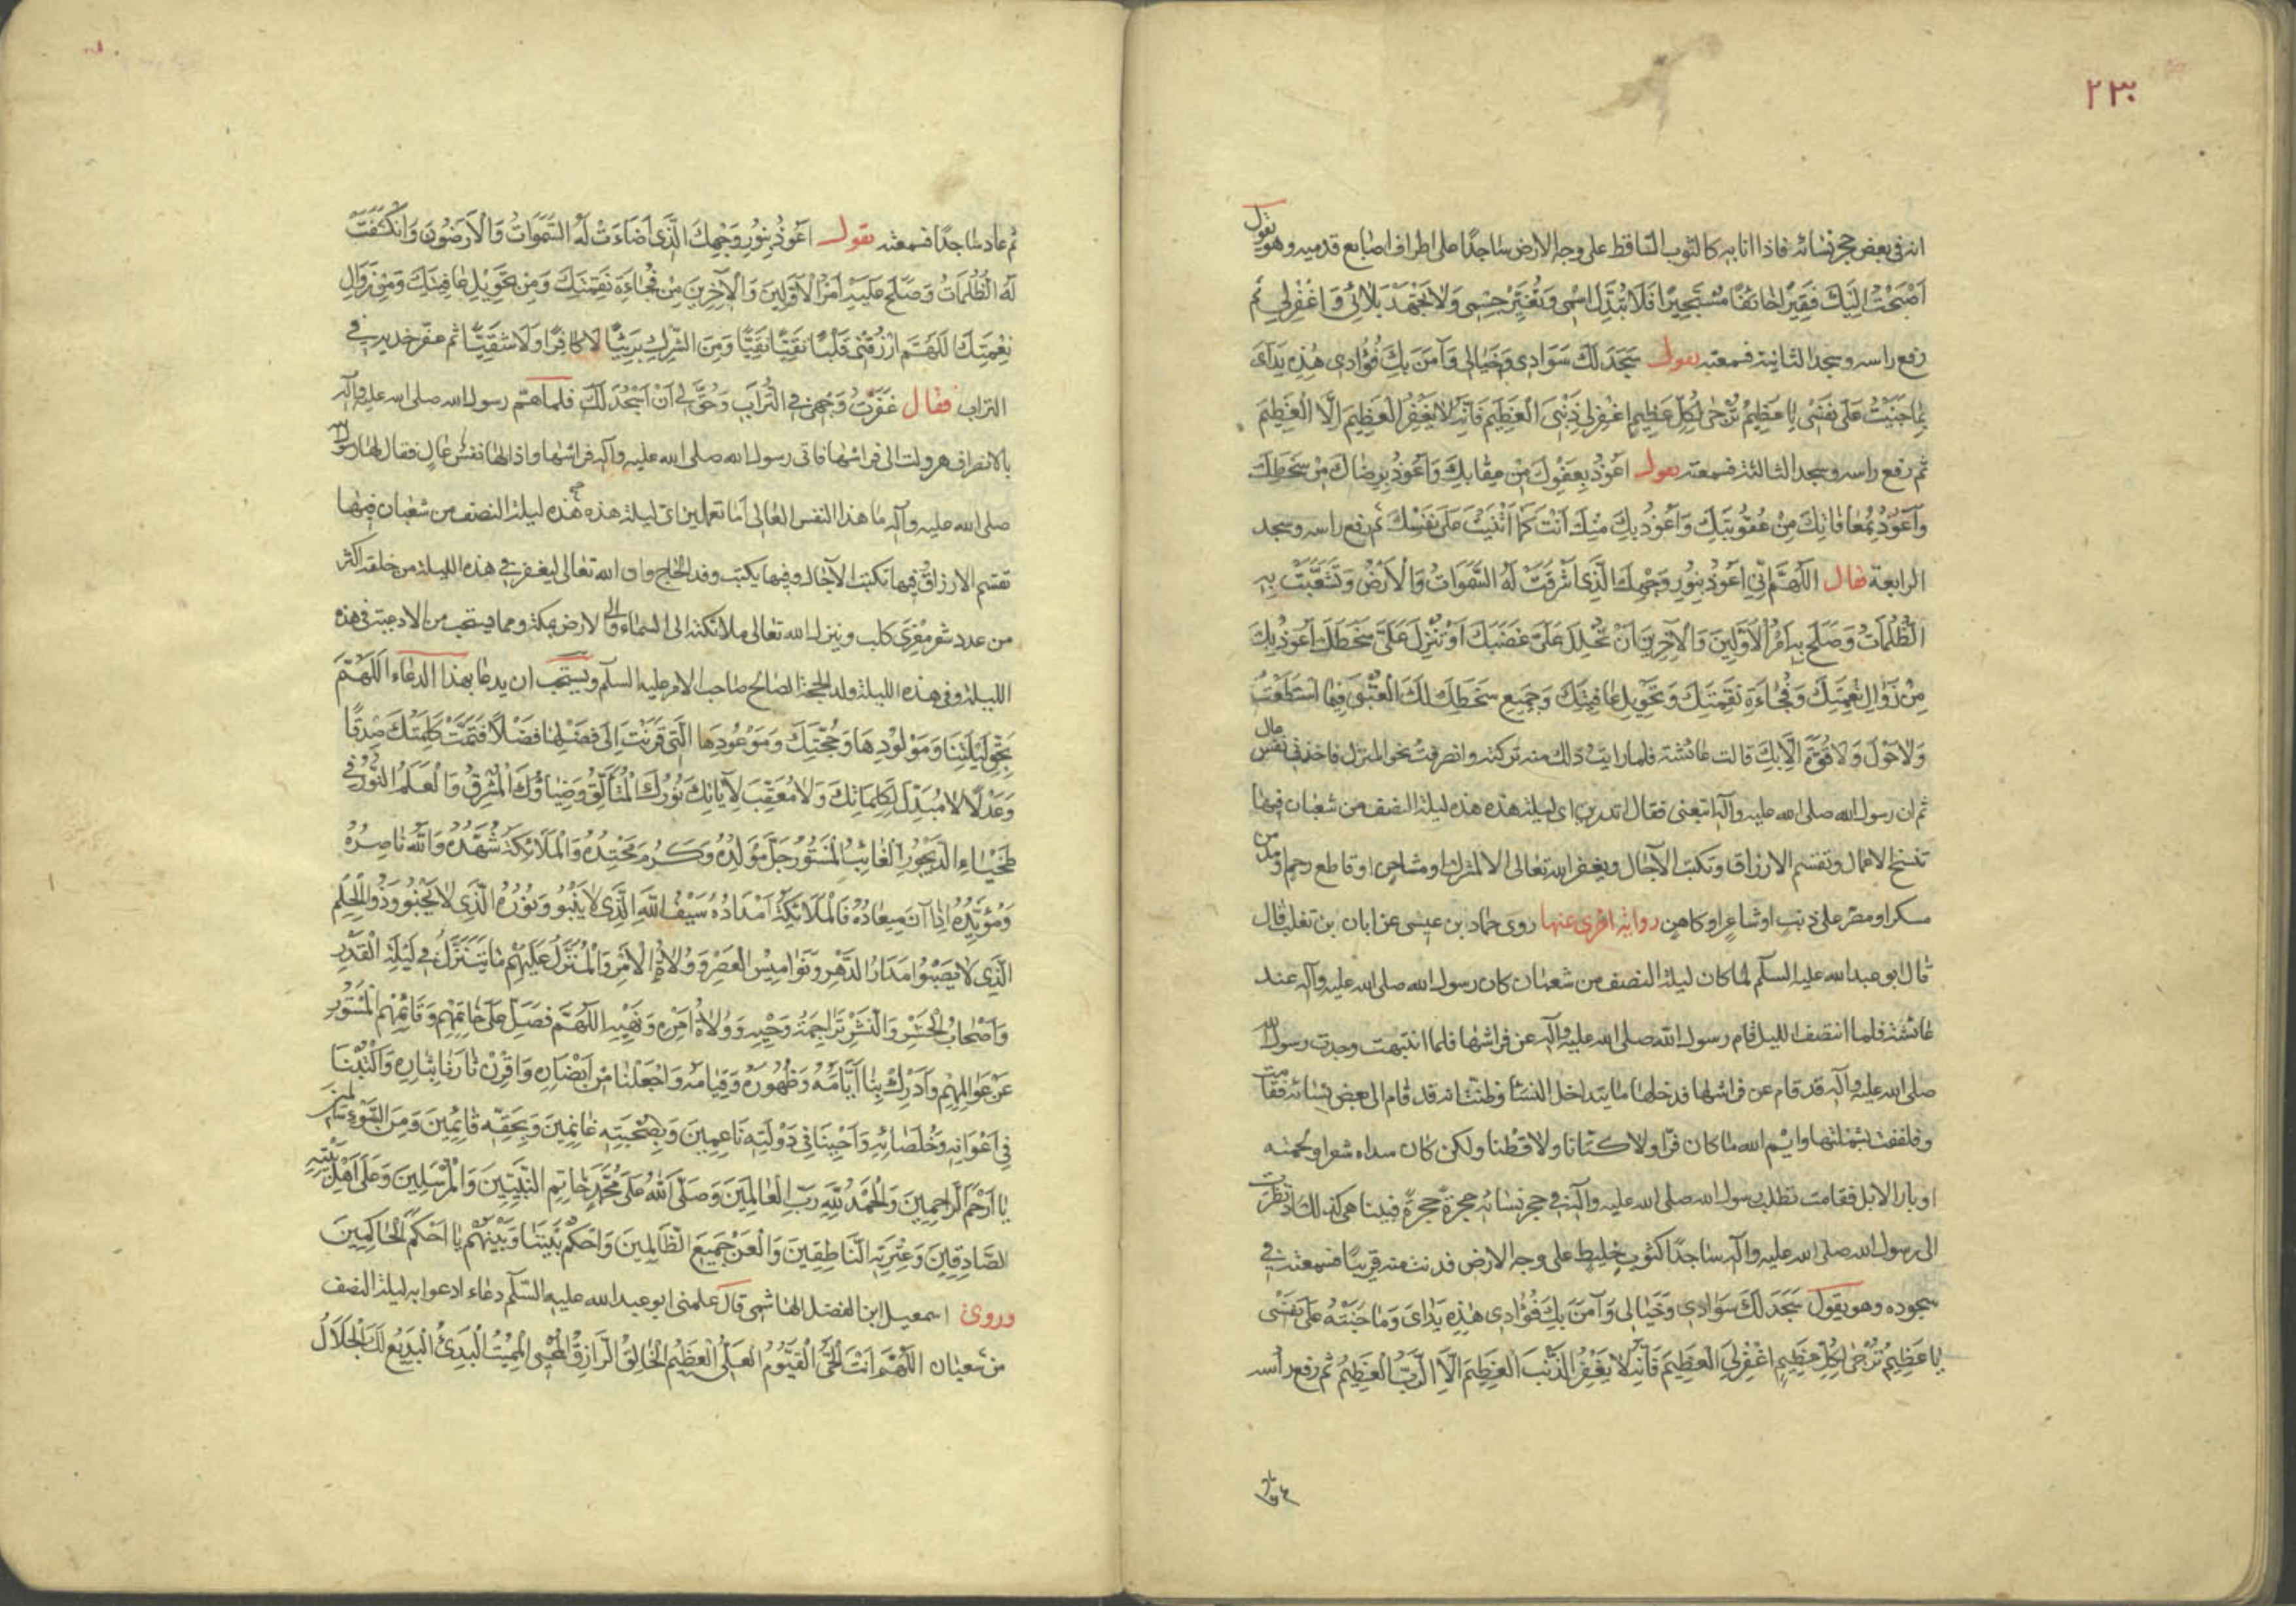 ٢٣٠
انه فى بعض حجر نسائه فاذا انا به كالثوب الساقط على وجه الارض ساجدًا على اطراف اصابع قدميه وهو يقول
اَصْبَحْتُ اِلَيْكَ فَقِيرًا خائفًا مُسْتَجِيرًا فَلا تُبَدِّلْ اسْمِى وَتُغَيِّرْ جِسْمِى وَلا تَجْهَدْ بَلائى وَاغْفِرْلِى ثم
رفع راسه وسجد الثانية فسمعته يقول سَجَدَ لَكَ سَوَادِى وَخَيالِى وَآمَنَ بِكَ فُؤادِى هٰذِهِ يَداىَ
بِما جَنَيْتُ عَلى نَفْسِى يا عَظِيمُ تُرْجى لِكُلِّ عَظِيمٍ اغْفِرْلِى ذَنْبِىَ الْعَظِيمَ فَاِنَّهُ لا يَغْفِرُ الْعَظِيمَ اِلَّا الْعَظِيمُ
ثم رفع راسه وسجد الثالثة فسمعته يقول اعُوذُ بِعَفْوِكَ مِنْ عِقابِكَ وَاَعُوذُ بِرِضاكَ مِنْ سَخَطِكَ
وَاَعُوذُ بِمُعافاتِكَ مِنْ عُقُوبَتِكَ وَاَعُوذُ بِكَ مِنْكَ اَنْتَ كَما اَثْنَيْتَ عَلى نَفْسِكَ ثم رفع راسه وسجد
الرابعة فقال اَللّهُمَّ اِنِّى اَعُوذُ بِنُورِ وَجْهِكَ الَّذِى اَشْرَقَتْ لَهُ السَّمٰوَاتُ وَالْاَرْضُ وَتَشَعَّبَتْ بِهِ
الظُّلُماتُ وَصَلَحَ بِهِ اَمْرُ الْاَوَّلِينَ وَالْآخِرِينَ اَنْ تُحْلِلَ عَلَىَّ غَضَبَكَ اَوْ تُنْزِلَ عَلَىَّ سَخَطَكَ اَعُوذُ بِكَ
مِنْ زَوالِ نِعْمَتِكَ وَفُجاءَةِ نَقِمَتِكَ وَتَحْوِيلِ عافِيَتِكَ وَجَمِيعِ سَخَطِكَ لَكَ الْعُتْبى فِيمَا اسْتَطَعْتُ
وَلا حَوْلَ وَلا قُوَّةَ اِلَّا بِكَ قالت عائشة فلما رايت ذلك منه تركته وانصرفت نحو المنزل فاخذنى نفس عال
ثم ان رسول الله صلى الله عليه وآله اتبعنى فقال اتدرين اى ليلة هذه هذه ليلة النصف من شعبان فيها
تنسخ الاعمال وتقسم الارزاق وتكتب الآجال ويغفر الله تعالى الا لمشرك او مشاحن او قاطع رحم او مدمن
مسكر او مصر على ذنب او شاعر او كاهن رواية اخرى عنها روى حماد بن عيسى عن ابان بن تغلب قال
قال ابو عبد الله عليه السلام لما كان ليلة النصف من شعبان كان رسول الله صلى الله عليه وآله عند
عائشة فلما انتصف الليل قام رسول الله صلى الله عليه وآله عن فراشها فلما انتبهت وجدت رسول الله
صلى الله عليه وآله قد قام عن فراشها فدخلها ما يتداخل النساء وظنت انه قد قام الى بعض نسائه فقامت
وتلففت بشملتها وايم الله ما كان قزا ولا كتانا ولا قطنا ولكن كان سداه شعرا ولحمته
اوبار الابل فقامت تطلب رسول الله صلى الله عليه وآله فى حجر نسائه حجرةً حجرةً فبينا هى كذلك اذ نظرت
الى رسول الله صلى الله عليه وآله ساجدًا كثوبٍ خليطٍ على وجه الارض فدنت منه قريبًا فسمعته فى
سجوده وهو يقول سَجَدَ لَكَ سَوادِى وَخَيالِى وَآمَنَ بِكَ فُؤادِى هٰذِهِ يَداىَ وَما جَنَيْتُهُ عَلى نَفْسِى
يا عَظِيمُ تُرْجى لِكُلِّ عَظِيمٍ اغْفِرْلِىَ الْعَظِيمَ فَاِنَّهُ لا يَغْفِرُ الذَّنْبَ الْعَظِيمَ اِلَّا الرَّبُّ الْعَظِيمُ ثم رفع رأسه
ثم عاد ساجدًا فسمعته يقول اَعُوذُ بِنُورِ وَجْهِكَ الَّذِى اَضاءَتْ لَهُ السَّمٰوَاتُ وَالْاَرَضُونَ وَانْكَشَفَتْ
لَهُ الظُّلُماتُ وَصَلَحَ عَلَيْهِ اَمْرُ الْاَوَّلِينَ وَالْآخِرِينَ مِنْ فُجاءَةِ نَقِمَتِكَ وَمِنْ تَحْوِيلِ عافِيَتِكَ وَمِنْ زَوالِ
نِعْمَتِكَ اَللّهُمَّ ارْزُقْنِى قَلْبًا تَقِيًّا نَقِيًّا وَمِنَ الشِّرْكِ بَرِيئًا لا كافِرًا وَلا شَقِيًّا ثم عفر خديه فى
التراب فقال عَفَّرْتُ وَجْهِى فِى التُّرابِ وَحُقَّ لِى اَنْ اَسْجُدَ لَكَ فلما هم رسول الله صلى الله عليه وآله
بالانصراف هرولت الى فراشها فاتى رسول الله صلى الله عليه وآله فراشها واذا لها نفس عال فقال لها رسول الله
صلى الله عليه وآله ما هذا النفس العالى اما تعلمين اى ليلة هذه هذه ليلة النصف من شعبان فيها
تقسم الارزاق وفيها تكتب الآجال وفيها يكتب وفد الحاج وان الله تعالى ليغفر فى هذه الليلة من خلقه اكثر
من عدد شعر معزى كلب وينزل الله تعالى ملائكته الى السماء والى الارض بمكة ومما يستحب من الادعية فى هذه
الليلة وفى هذه الليلة ولد الحجة الصالح صاحب الامر عليه السلم ويستحب ان يدعا بهذا الدعاء اَللّهُمَّ
بِحَقِّ لَيْلَتِنا وَمَوْلُودِها وَحُجَّتِكَ وَمَوْعُودِها الَّتِى قَرَنْتَ اِلى فَضْلِها فَضْلًا فَتَمَّتْ كَلِمَتُكَ صِدْقًا
وَعَدْلًا لا مُبَدِّلَ لِكَلِماتِكَ وَلا مُعَقِّبَ لِآياتِكَ نُورُكَ الْمُتَاَلِّقُ وَضِياؤُكَ الْمُشْرِقُ وَالْعَلَمُ النُّورُ فِى
طَخْياءِ الدَّيْجُورِ الْغائِبُ الْمَسْتُورُ جَلَّ مَوْلِدُهُ وَكَرُمَ مَحْتِدُهُ وَالْمَلائِكَةُ شُهَّدُهُ وَاللهُ ناصِرُهُ
وَمُؤَيِّدُهُ اِذا آنَ مِيعادُهُ فَالْمَلائِكَةُ اَمْدادُهُ سَيْفُ اللهِ الَّذِى لا يَنْبُو وَنُورُهُ الَّذِى لا يَخْبُو وَذُو الْحِلْمِ
الَّذِى لا يَصْبُوا مَدارُ الدَّهْرِ وَنَوامِيسُ الْعَصْرِ وَوُلاةُ الْاَمْرِ وَالْمُنَزَّلُ عَلَيْهِمْ ما يَتَنَزَّلُ فِى لَيْلَةِ الْقَدْرِ
وَاَصْحابُ الْحَشْرِ وَالنَّشْرِ تَراجِمَةُ وَحْيِهِ وَوُلاةُ اَمْرِهِ وَنَهْيِهِ اَللّهُمَّ فَصَلِّ عَلى خاتِمِهِمْ وَقائِمِهِمُ الْمَسْتُورِ
عَنْ عَوالِمِهِمْ وَاَدْرِكْ بِنا اَيَّامَهُ وَظُهُورَهُ وَقِيامَهُ وَاجْعَلْنا مِنْ اَنْصارِهِ وَاقْرِنْ ثارَنا بِثارِهِ وَاكْتُبْنا
فِى اَعْوانِهِ وَخُلَصائِهِ وَاَحْيِنا فِى دَوْلَتِهِ ناعِمِينَ وَبِصُحْبَتِهِ غانِمِينَ وَبِحَقِّهِ قائِمِينَ وَمِنَ السُّوءِ سالِمِينَ
يا اَرْحَمَ الرَّاحِمِينَ وَالْحَمْدُ لِلّهِ رَبِّ الْعالَمِينَ وَصَلَّى اللهُ عَلى مُحَمَّدٍ خاتِمِ النَّبِيِّينَ وَالْمُرْسَلِينَ وَعَلى اَهْلِ بَيْتِهِ
الصَّادِقِينَ وَعِتْرَتِهِ النَّاطِقِينَ وَالْعَنْ جَمِيعَ الظَّالِمِينَ وَاحْكُمْ بَيْنَنا وَبَيْنَهُمْ يا اَحْكَمَ الْحاكِمِينَ
وروى اسمعيل ابن الفضل الهاشمى قال علمنى ابو عبد الله عليه السلم دعاء ادعوا به ليلة النصف
من شعبان اَللّهُمَّ اَنْتَ الْحَىُّ الْقَيُّومُ الْعَلِىُّ الْعَظِيمُ الْخالِقُ الرَّازِقُ الْمُحْيِى الْمُمِيتُ الْبَدِىءُ الْبَدِيعُ لَكَ الْجَلالُ